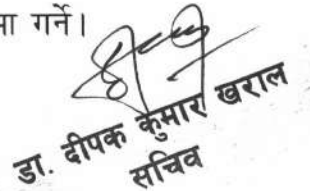 मा गर्ने।
डा. दीपक कुमार खराल
सचिव